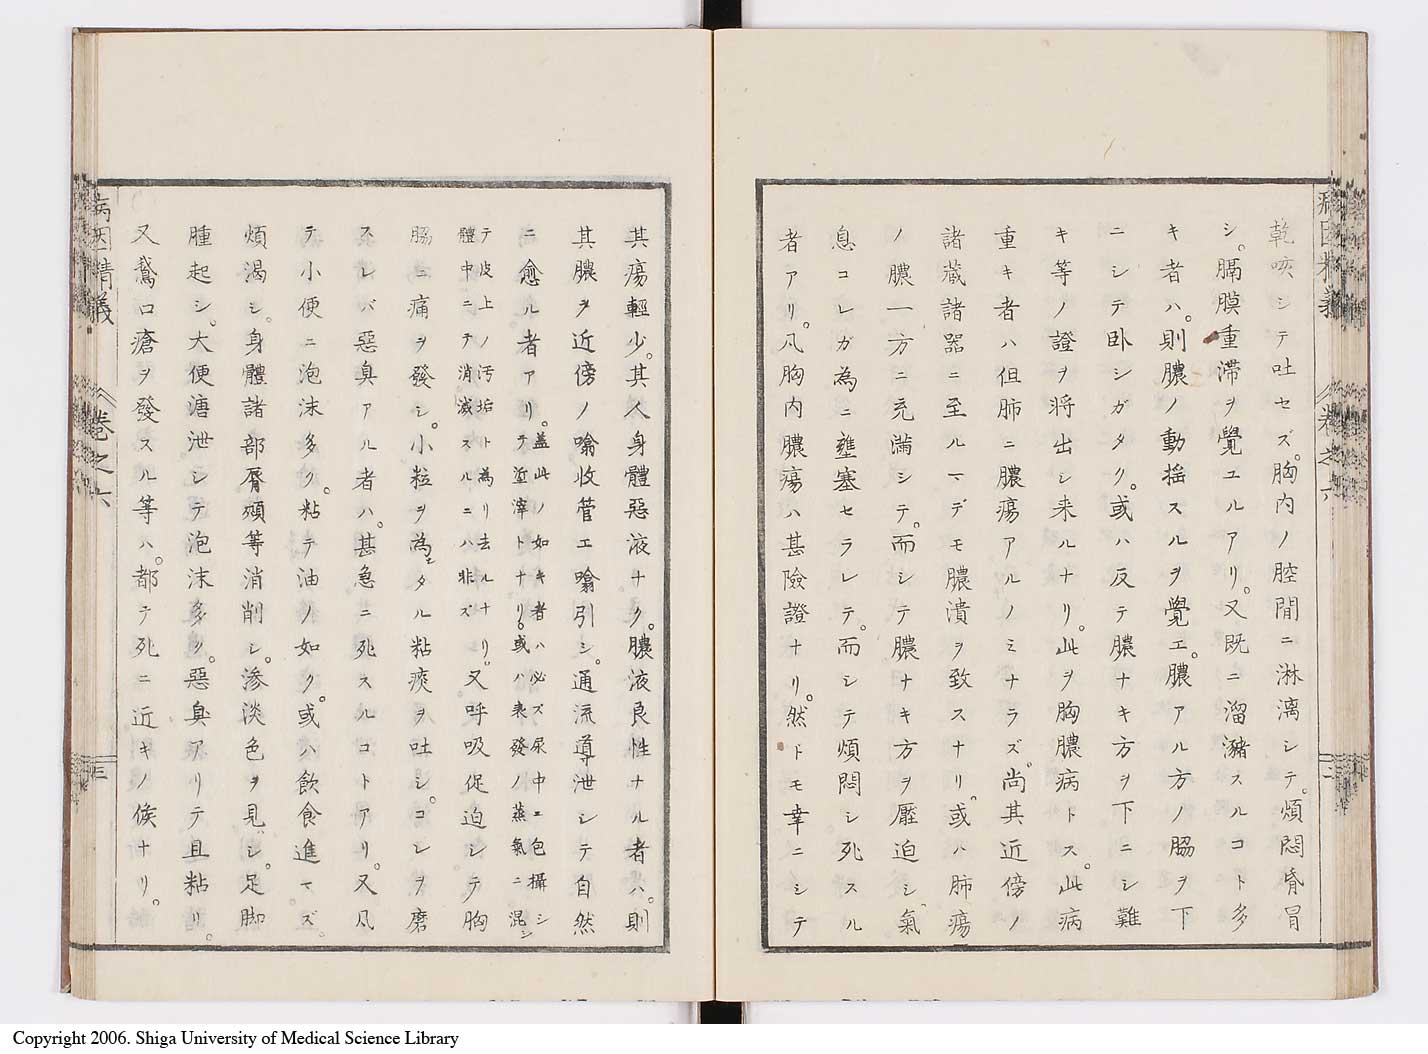 乾咳シテ吐セズ。胸内ノ腔間ニ淋漓シテ。煩悶昏冒
シ。膈膜重滞ヲ覺エルアリ。又既ニ溜瀦スルコト多
キ者ハ。則膿ノ動揺スルヲ覺エ。膿アル方ノ脇ヲ下
ニシテ卧シガタク。或ハ反テ膿ナキ方ヲ下ニシ難
キ等ノ證ヲ将出シ来ルナリ。此ヲ胸膿病トス。此病
重キ者ハ但肺ニ膿瘍アルノミナラズ。尚其近傍ノ
諸藏諸器ニ至ルマデモ膿潰ヲ致スナリ。或ハ肺瘍
ノ膿一方ニ充満シテ。而シテ膿ナキ方ヲ壓迫シ。氣
息コレガ為ニ壅塞セラレテ。而シテ煩悶シ死スル
者アリ。凡胸内膿瘍ハ甚險證ナリ。然トモ幸ニシテ
病因精義 卷之六 二
其瘍輕少。其人身體惡液ナク。膿液良性ナル者ハ。則
其膿ヲ近傍ノ噏收管エ噏引シ。通流導泄シテ自然
ニ愈ル者アリ。蓋此ノ如キ者ハ必ズ尿中エ包攝シ
テ渣滓トナリ。或ハ表發ノ蒸氣ニ混シ
テ皮上ノ汚垢ト為リ去ルナリ。
體中ニテ消滅スルニハ非ズ 又呼吸促迫シテ胸
脇ニ痛ヲ發シ。小粒ヲ為エタル粘痰ヲ吐シ。コレヲ磨
スレバ惡臭アル者ハ。甚急ニ死スルコトアリ。又凡
テ小便ニ泡沫多ク。粘テ油ノ如ク。或ハ飲食進マズ。
煩渇シ。身體諸部脣頰等消削シ。滲淡色ヲ見シ。足脚
腫起シ。大便溏泄シテ泡沫多ク。惡臭アリテ且粘リ。
又鵞口瘡ヲ發スル等ハ。都テ死ニ近キノ候ナリ。
病因精義 卷之六 三
Copyright 2006. Shiga University of Medical Science Library